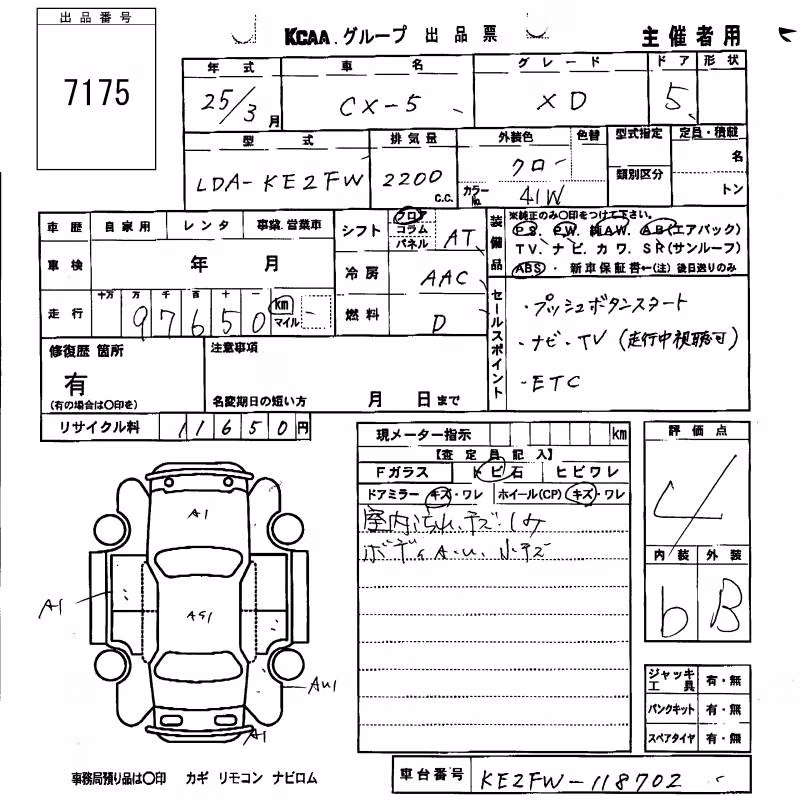 出品番号
7175
KCAA.グループ 出品票 主催者用
年式 車名 グレード ドア 形状
25/3月 CX-5 XD 5
型式 排気量 外装色 色替 型式指定 定員・積載
LDA-KE2FW 2200 c.c. クロー 類別区分 名
カラーNo. 41W トン
車歴 自家用 レンタ 事業.営業車
シフト フロア コラム パネル AT
装備品
※純正のみ〇印をつけて下さい。
PS. PW. 純AW. AB(エアバック)
TV. ナビ. カワ. SR(サンルーフ)
ABS ・ 新車保証書←(注) 後日送りのみ
車検 年 月
冷房 AAC
走行 十万 万 千 百 十 一
97650 km マイル
燃料 D
セールスポイント
・プッシュボタンスタート
・ナビ・TV (走行中視聴可)
・ETC
修復歴 箇所
有
(有の場合は〇印を)
注意事項
名変期日の短い方 月 日まで
リサイクル料 11650円
現メーター指示 km
【査定員記入】
Fガラス トビ石 ヒビワレ
ドアミラー キズ・ワレ ホイール(CP) キズ・ワレ
室内汚れ.キズ.シミ
ボディA.U.小キズ
評価点
4
内装 外装
b B
A1
A1
AG1
AU1
A1
ジャッキ 工具 有・無
パンクキット 有・無
スペアタイヤ 有・無
事務局預り品は〇印 カギ リモコン ナビロム
車台番号 KE2FW-118702